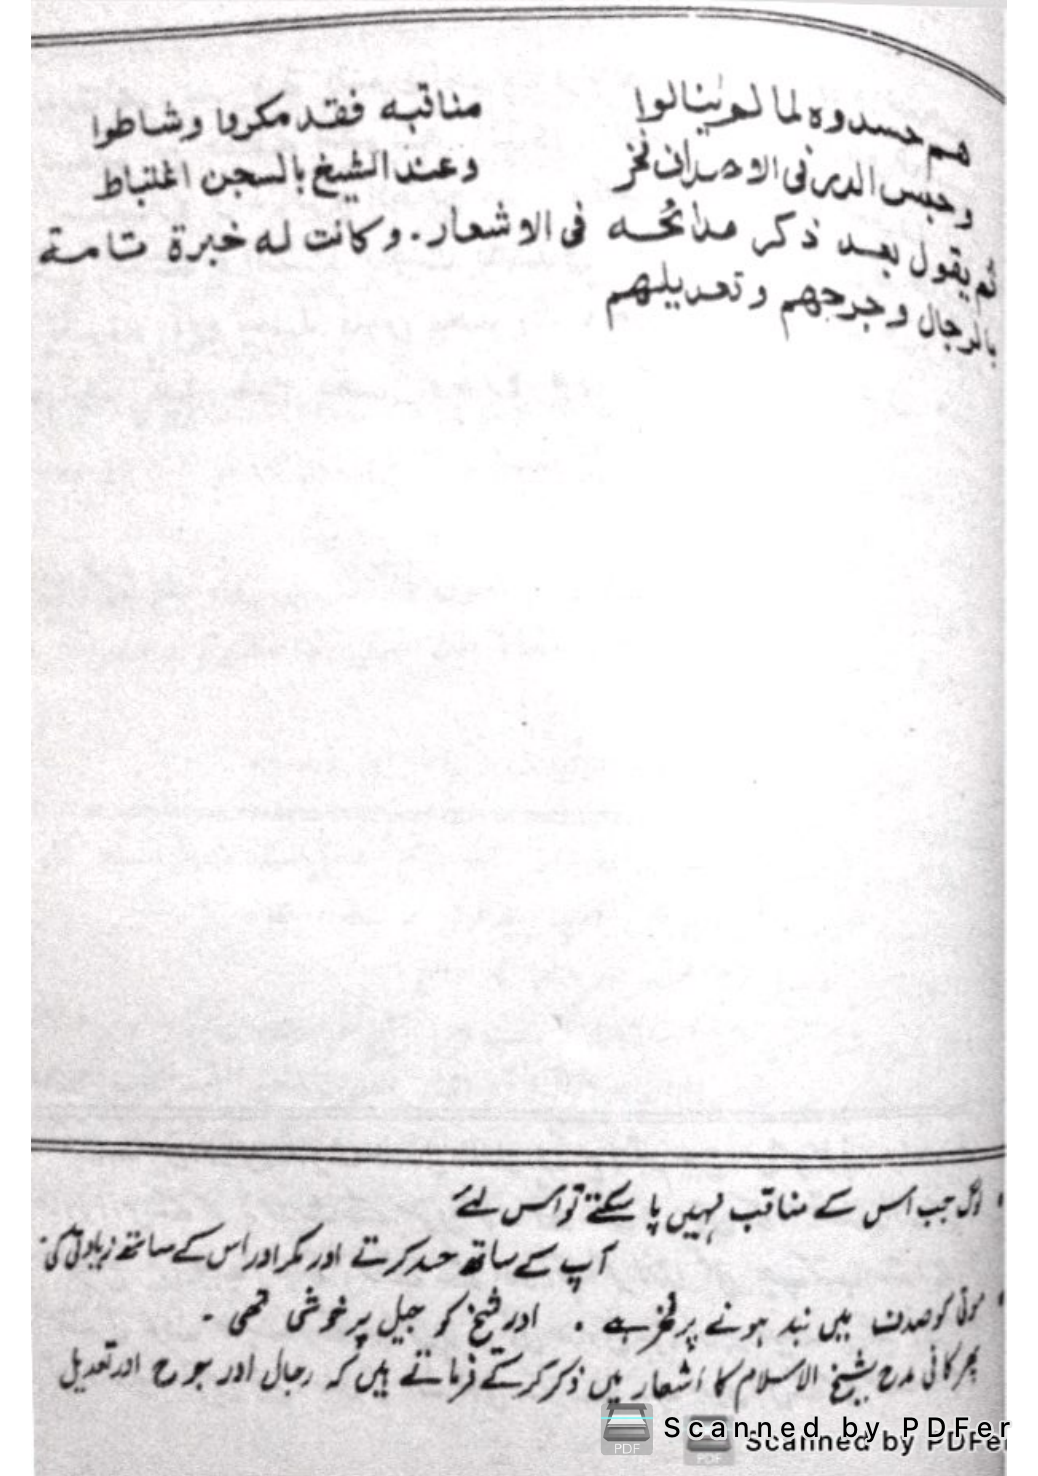 هم حسدوه لما لم ينالوا مناقبه فقد مكروا وشاطوا
وحبس الدر فى الاصداف فخر وعند الشيخ بالسجن اغتباط
ثم يقول بعد ذكر مدائحه فى الاشعار. وكانت له خبرة تامة
بالرجال وجرحهم وتعديلهم
لوگ جب اس کے مناقب نہیں پا سکتے تو اس لئے
آپ کے ساتھ حسد کرتے اور مکر اور اس کے ساتھ زیادتی کی
موتی کو صدف میں بند ہونے پر فخر ہے ۔ اور شیخ کو جیل پر خوشی تھی ۔
پھر کافی مدح شیخ الاسلام کا اشعار میں ذکر کر کے فرماتے ہیں کہ رجال اور جرح اور تعدیل
Scanned by PDFer
Scanned by PDFer